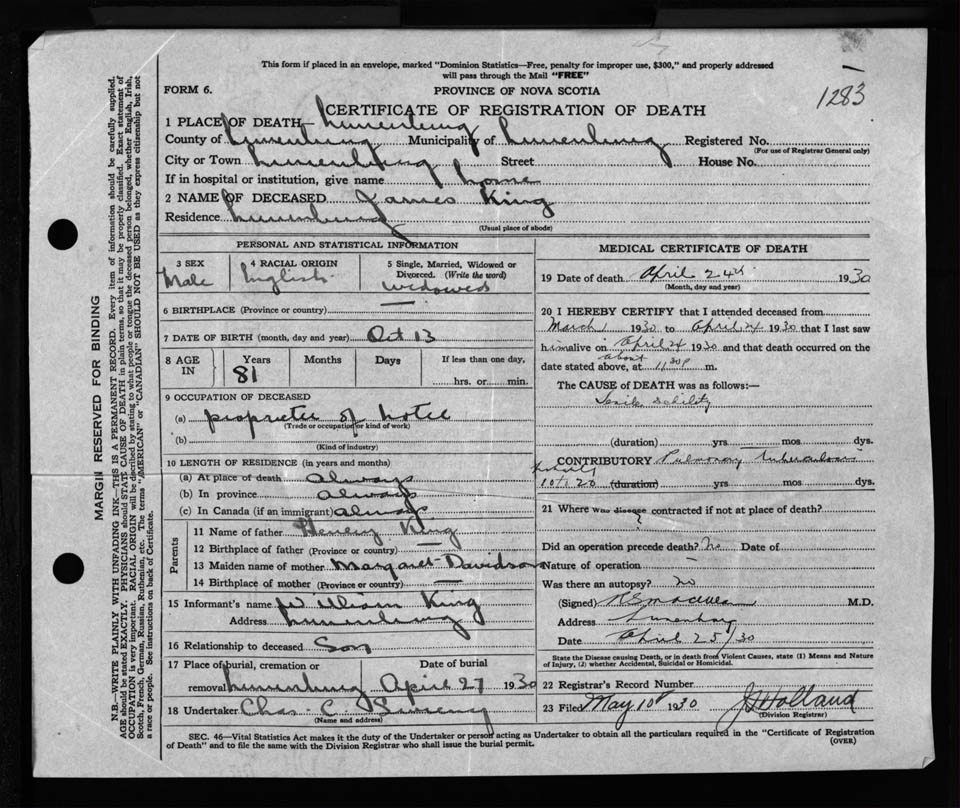 This form if placed in an envelope, marked "Dominion Statistics—Free, penalty for improper use, $300," and properly addressed
will pass through the Mail "FREE"
FORM 6. PROVINCE OF NOVA SCOTIA
1283
CERTIFICATE OF REGISTRATION OF DEATH
1 PLACE OF DEATH— Lunenburg
County of Lunenburg Municipality of Lunenburg Registered No.
(For use of Registrar General only)
City or Town Lunenburg Street House No.
If in hospital or institution, give name home
2 NAME OF DECEASED James King
Residence Lunenburg
(Usual place of abode)
PERSONAL AND STATISTICAL INFORMATION
3 SEX Male
4 RACIAL ORIGIN English
5 Single, Married, Widowed or Divorced. (Write the word) widowed
6 BIRTHPLACE (Province or country) —
7 DATE OF BIRTH (month, day and year) Oct 13
8 AGE IN Years Months Days If less than one day,
81 hrs. or min.
9 OCCUPATION OF DECEASED
(a) proprietor of hotel
(Trade or occupation or kind of work)
(b)
(Kind of industry)
10 LENGTH OF RESIDENCE (in years and months)
(a) At place of death always
(b) In province always
(c) In Canada (if an immigrant) always
Parents
11 Name of father Henery King
12 Birthplace of father (Province or country) —
13 Maiden name of mother Margaret Davidson
14 Birthplace of mother (Province or country) —
15 Informant's name William King
Address Lunenburg
16 Relationship to deceased Son
17 Place of burial, cremation or Date of burial
removal Lunenburg April 27 1930
18 Undertaker Chas. C.
(Name and address)
MEDICAL CERTIFICATE OF DEATH
19 Date of death April 24th 1930
(Month, day and year)
20 I HEREBY CERTIFY that I attended deceased from
March 1930 to April 24 1930 that I last saw
him alive on April 24 1930 and that death occurred on the
date stated above, at about 11.30 p m.
The CAUSE OF DEATH was as follows:—
Senile debility
(duration) yrs mos dys.
CONTRIBUTORY Pulmonary tuberculosis
10 to 20 (duration) yrs mos dys.
21 Where was disease contracted if not at place of death?
?
Did an operation precede death? no Date of
Nature of operation —
Was there an autopsy? no
(Signed) M.D.
Address Lunenburg
Date April 25/30
State the Disease causing Death, or in death from Violent Causes, state (1) Means and Nature
of Injury, (2) whether Accidental, Suicidal or Homicidal.
22 Registrar's Record Number
23 Filed May 10th 1930 Holland
(Division Registrar)
SEC. 46—Vital Statistics Act makes it the duty of the Undertaker or person acting as Undertaker to obtain all the particulars required in the "Certificate of Registration
of Death" and to file the same with the Division Registrar who shall issue the burial permit. (OVER)
MARGIN RESERVED FOR BINDING
N.B.—WRITE PLAINLY WITH UNFADING INK—THIS IS A PERMANENT RECORD. Every item of information should be carefully supplied.
AGE should be stated EXACTLY. PHYSICIANS should STATE CAUSE OF DEATH in plain terms, so that it may be properly classified. Exact statement of
OCCUPATION is very important. RACIAL ORIGIN will be described by stating to what people or tongue the deceased person belonged, whether English, Irish,
Scotch, French, German, Russian, Ruthenian, etc. The terms "AMERICAN" or "CANADIAN" SHOULD NOT BE USED as they express citizenship but not
a race or people. See instructions on back of Certificate.